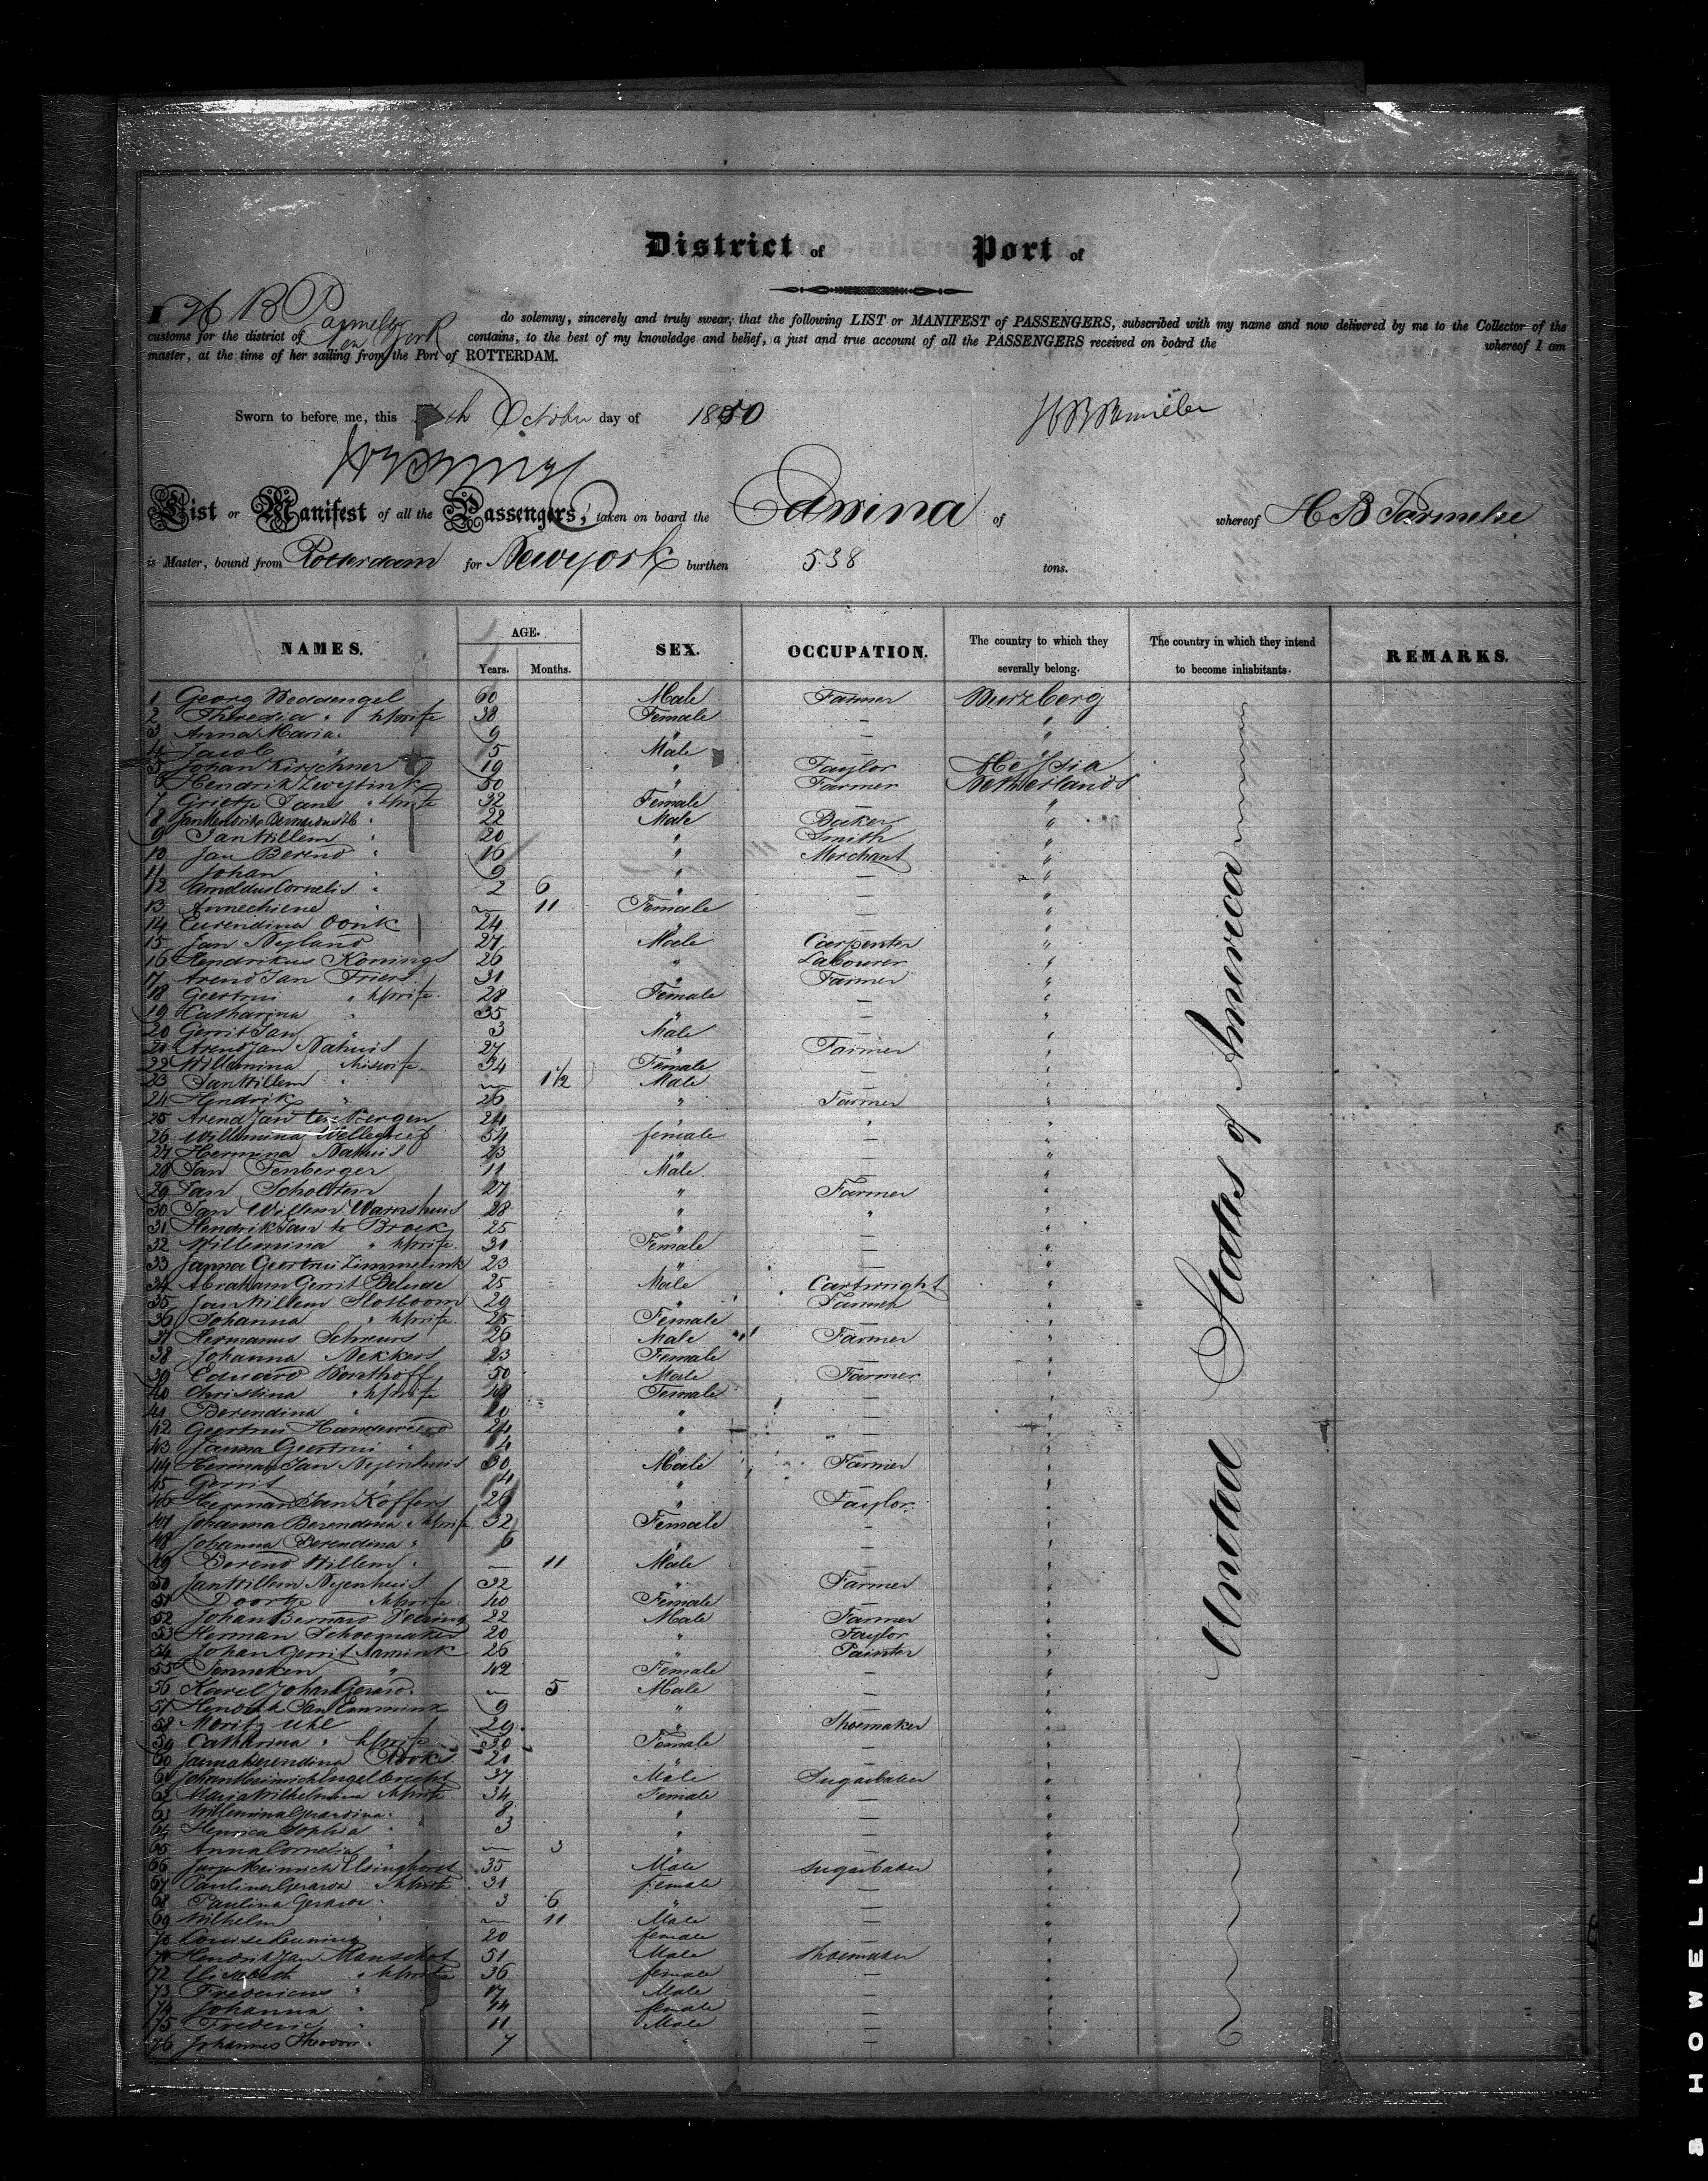 District of Port of
I H B Parmelee do solemny, sincerely and truly swear, that the following LIST or MANIFEST of PASSENGERS, subscribed with my name and now delivered by me to the Collector of the
customs for the district of New York contains, to the best of my knowledge and belief, a just and true account of all the PASSENGERS received on board the whereof I am
master, at the time of her sailing from the Port of ROTTERDAM.
Sworn to before me, this th October day of 1850
List or Manifest of all the Passengers, taken on board the Edwina of whereof H B Parmelee
is Master, bound from Rotterdam for Newyork burthen 538 tons.
NAMES. AGE. Years. Months. SEX. OCCUPATION. The country to which they severally belong. The country in which they intend to become inhabitants. REMARKS.
United States of America
1 Georg Weddengel 60 Male Farmer Wurzberg
2 Theresia " h/wife 38 Female — "
3 Anna Maria " 9 " — "
4 Jacob " 5 Male — "
5 Johan Kirschner 19 " Taylor Hessia
6 Hendrik 50 " Farmer Netherlands
7 Grietje Jans " h/wife 32 Female — "
8 Jan Hendrik " 22 Male Baker "
9 Jan Willem " 20 " Smith "
10 Jan Berend " 16 " Merchant "
11 Johan " 9 " — "
12 Arnoldus Cornelis " 2 6 " — "
13 Annechiene " — 11 Female — "
14 Oonk 24 " — "
15 Jan Nyland 27 Male Carpenter "
16 Hendrikus Konings 26 " Labourer "
17 Arend Jan Friers 31 " Farmer "
18 Geertrui " h/wife 28 Female — "
19 Catharina " 35 " — "
20 Gerrit Jan " 3 Male — "
21 Arend Jan Nahuis 27 " Farmer "
22 Willemina " his wife 34 Female — "
23 Jan Willem " — 1 1/2 Male — "
24 Hendrik " 26 " Farmer "
25 Arend Jan ten Bergen 24 " " "
26 Willemina 54 female — "
27 Hermina Nahuis 23 " — "
28 Jan Tenberger 11 Male — "
29 Jan Scholten 27 " Farmer "
30 Jan Willem Warnshuis 28 " " "
31 Hendrik Jan te Broek 25 " — "
32 Willemina " h/wife 31 Female — "
33 Janna Geertrui Zimmelink 23 " — "
34 Abraham Gerrit 25 Male Cartwright "
35 Jan Willem Slotboom 29 " Farmer "
36 Johanna " h/wife 25 Female — "
37 Hermanus Schreurs 26 Male Farmer "
38 Johanna Nekkers 23 Female — "
39 Eduard 50 Male Farmer "
40 Christina " h/wife 49 Female — "
41 Berendina " " — "
42 Geertrui 24 " — "
43 Janna Geertrui " 4 " — "
44 Herman Jan Nyenhuis 30 Male Farmer "
45 Gerrit " 4 " — "
46 Herman Koffers 26 " Taylor "
47 Johanna Berendina h/wife 32 Female — "
48 Johanna Berendina " 6 " — "
49 Berend Willem " — 11 Male — "
50 Jan Willem Nyenhuis 32 " Farmer "
51 Doortje h/wife 40 Female — "
52 Johan Bernard 22 Male Farmer "
53 Herman Schoemaker 20 " Taylor "
54 Johan Gerrit 26 " Painter "
55 Janneken " 42 Female — "
56 Karel Johan Gerard " — 5 Male — "
57 Hendrik Jan 9 " — "
58 Moritz Uhl 29 " Shoemaker "
59 Catharina " h/wife 30 Female — "
60 Janna Berendina 21 " — "
61 Johan Heinrich Engelbrecht 37 Male Sugarbaker "
62 Maria Wilhelmina h/wife 34 Female — "
63 Willemina Gerardina " 8 " — "
64 Henrica Sophia " 3 " — "
65 Anna Cornelia " — 3 " — "
66 Heinrich Elsinghorst 35 Male sugarbaker "
67 Paulina Gerarda h/wife 31 female — "
68 Paulina " 3 6 " — "
69 Wilhelm " — 11 Male — "
70 Louise 20 female — "
71 Hendrik Jan Manschot 51 Male shoemaker "
72 Elisabeth " h/wife 36 female — "
73 Fredericus " 17 Male — "
74 Johanna " 14 female — "
75 Frederic " 11 Male — "
76 Johannes Theodor " 7 " — "
HOWELL